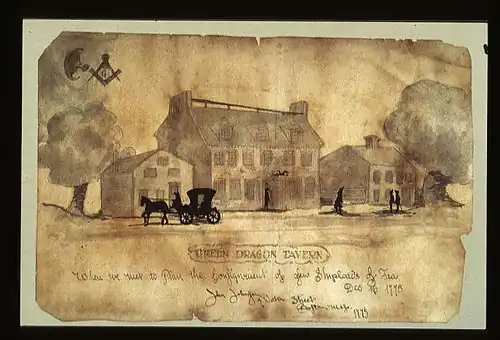 GREEN DRAGON TAVERN
When we met to Plan the Consignment of few Shiploads of Tea
Dec 16 1773
John Johnson
Water Street
Boston
1773